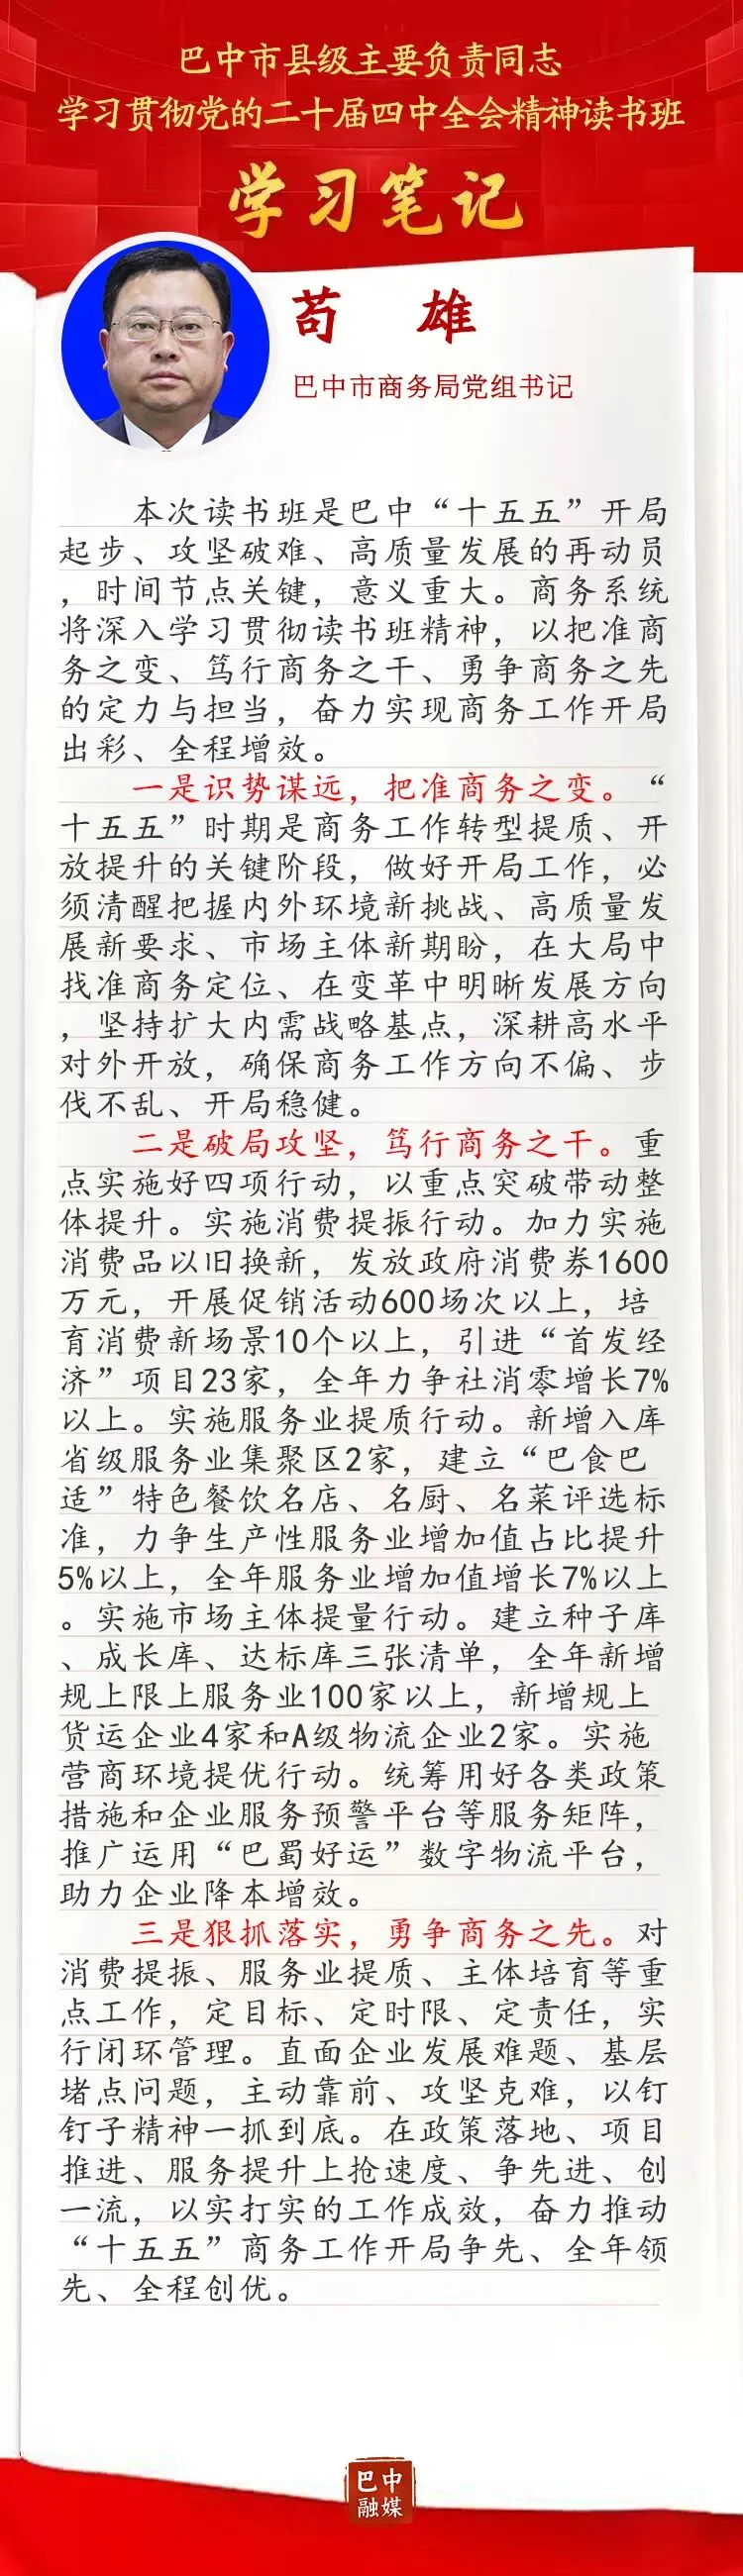 巴中市县级主要负责同志
学习贯彻党的二十届四中全会精神读书班
学习笔记
苟 雄
巴中市商务局党组书记
本次读书班是巴中“十五五”开局
起步、攻坚破难、高质量发展的再动员
，时间节点关键，意义重大。商务系统
将深入学习贯彻读书班精神，以把准商
务之变、笃行商务之干、勇争商务之先
的定力与担当，奋力实现商务工作开局
出彩、全程增效。
一是识势谋远，把准商务之变。“
十五五”时期是商务工作转型提质、开
放提升的关键阶段，做好开局工作，必
须清醒把握内外环境新挑战、高质量发
展新要求、市场主体新期盼，在大局中
找准商务定位、在变革中明晰发展方向
，坚持扩大内需战略基点，深耕高水平
对外开放，确保商务工作方向不偏、步
伐不乱、开局稳健。
二是破局攻坚，笃行商务之干。重
点实施好四项行动，以重点突破带动整
体提升。实施消费提振行动。加力实施
消费品以旧换新，发放政府消费券1600
万元，开展促销活动600场次以上，培
育消费新场景10个以上，引进“首发经
济”项目23家，全年力争社消零增长7%
以上。实施服务业提质行动。新增入库
省级服务业集聚区2家，建立“巴食巴
适”特色餐饮名店、名厨、名菜评选标
准，力争生产性服务业增加值占比提升
5%以上，全年服务业增加值增长7%以上
。实施市场主体提量行动。建立种子库
、成长库、达标库三张清单，全年新增
规上限上服务业100家以上，新增规上
货运企业4家和A级物流企业2家。实施
营商环境提优行动。统筹用好各类政策
措施和企业服务预警平台等服务矩阵，
推广运用“巴蜀好运”数字物流平台，
助力企业降本增效。
三是狠抓落实，勇争商务之先。对
消费提振、服务业提质、主体培育等重
点工作，定目标、定时限、定责任，实
行闭环管理。直面企业发展难题、基层
堵点问题，主动靠前、攻坚克难，以钉
钉子精神一抓到底。在政策落地、项目
推进、服务提升上抢速度、争先进、创
一流，以实打实的工作成效，奋力推动
“十五五”商务工作开局争先、全年领
先、全程创优。
巴中
融媒